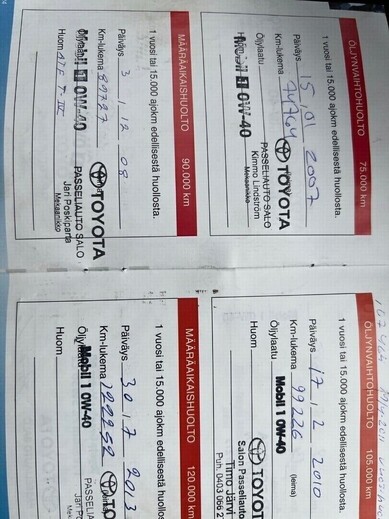 ÖLJYNVAIHTOHUOLTO 75.000 km
1 vuosi tai 15.000 ajokm edellisestä huollosta.
Päiväys 15,01 2007
Km-lukema
Öljylaatu Mobil 1 0W-40
TOYOTA
PASSELIAUTO SALO
Kimmo Lindström
Mekaanikko
MÄÄRÄAIKAISHUOLTO 90.000 km
1 vuosi tai 15.000 ajokm edellisestä huollosta.
Päiväys 3 , 12 08
Km-lukema
Öljylaatu Mobil 1 0W-40
Huom
TOYOTA
PASSELIAUTO SALO
Jari Poskiparta
Mekaanikko
ÖLJYNVAIHTOHUOLTO 105.000 km
1 vuosi tai 15.000 ajokm edellisestä huollosta.
Päiväys 17 , 2 2010
Km-lukema 99226 (leima)
Öljylaatu Mobil 1 0W-40
Huom
TOYOTA
Salon Passeliauto
Timo Järvi
Puh. 0403 066 2
MÄÄRÄAIKAISHUOLTO 120.000 km
1 vuosi tai 15.000 ajokm edellisestä huollosta.
Päiväys 30 , 7 2013
Km-lukema 122252
Öljylaatu Mobil 1 0W-40
Huom
PASSELIA